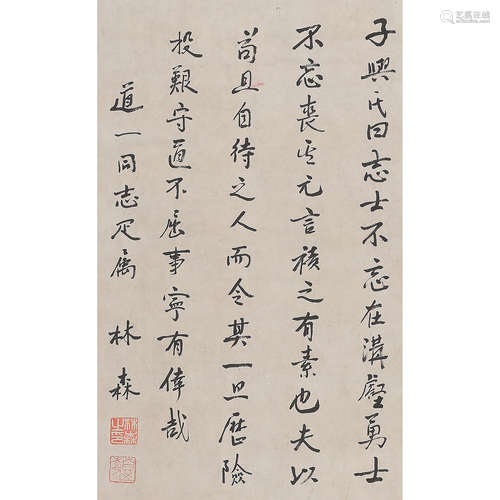 子輿氏曰志士不忘在溝壑勇士
不忘喪其元言積之有素也夫以
苟且自待之人而令其一旦歷險
投艱守道不屈事寧有偉哉
道一同志正屬
林森